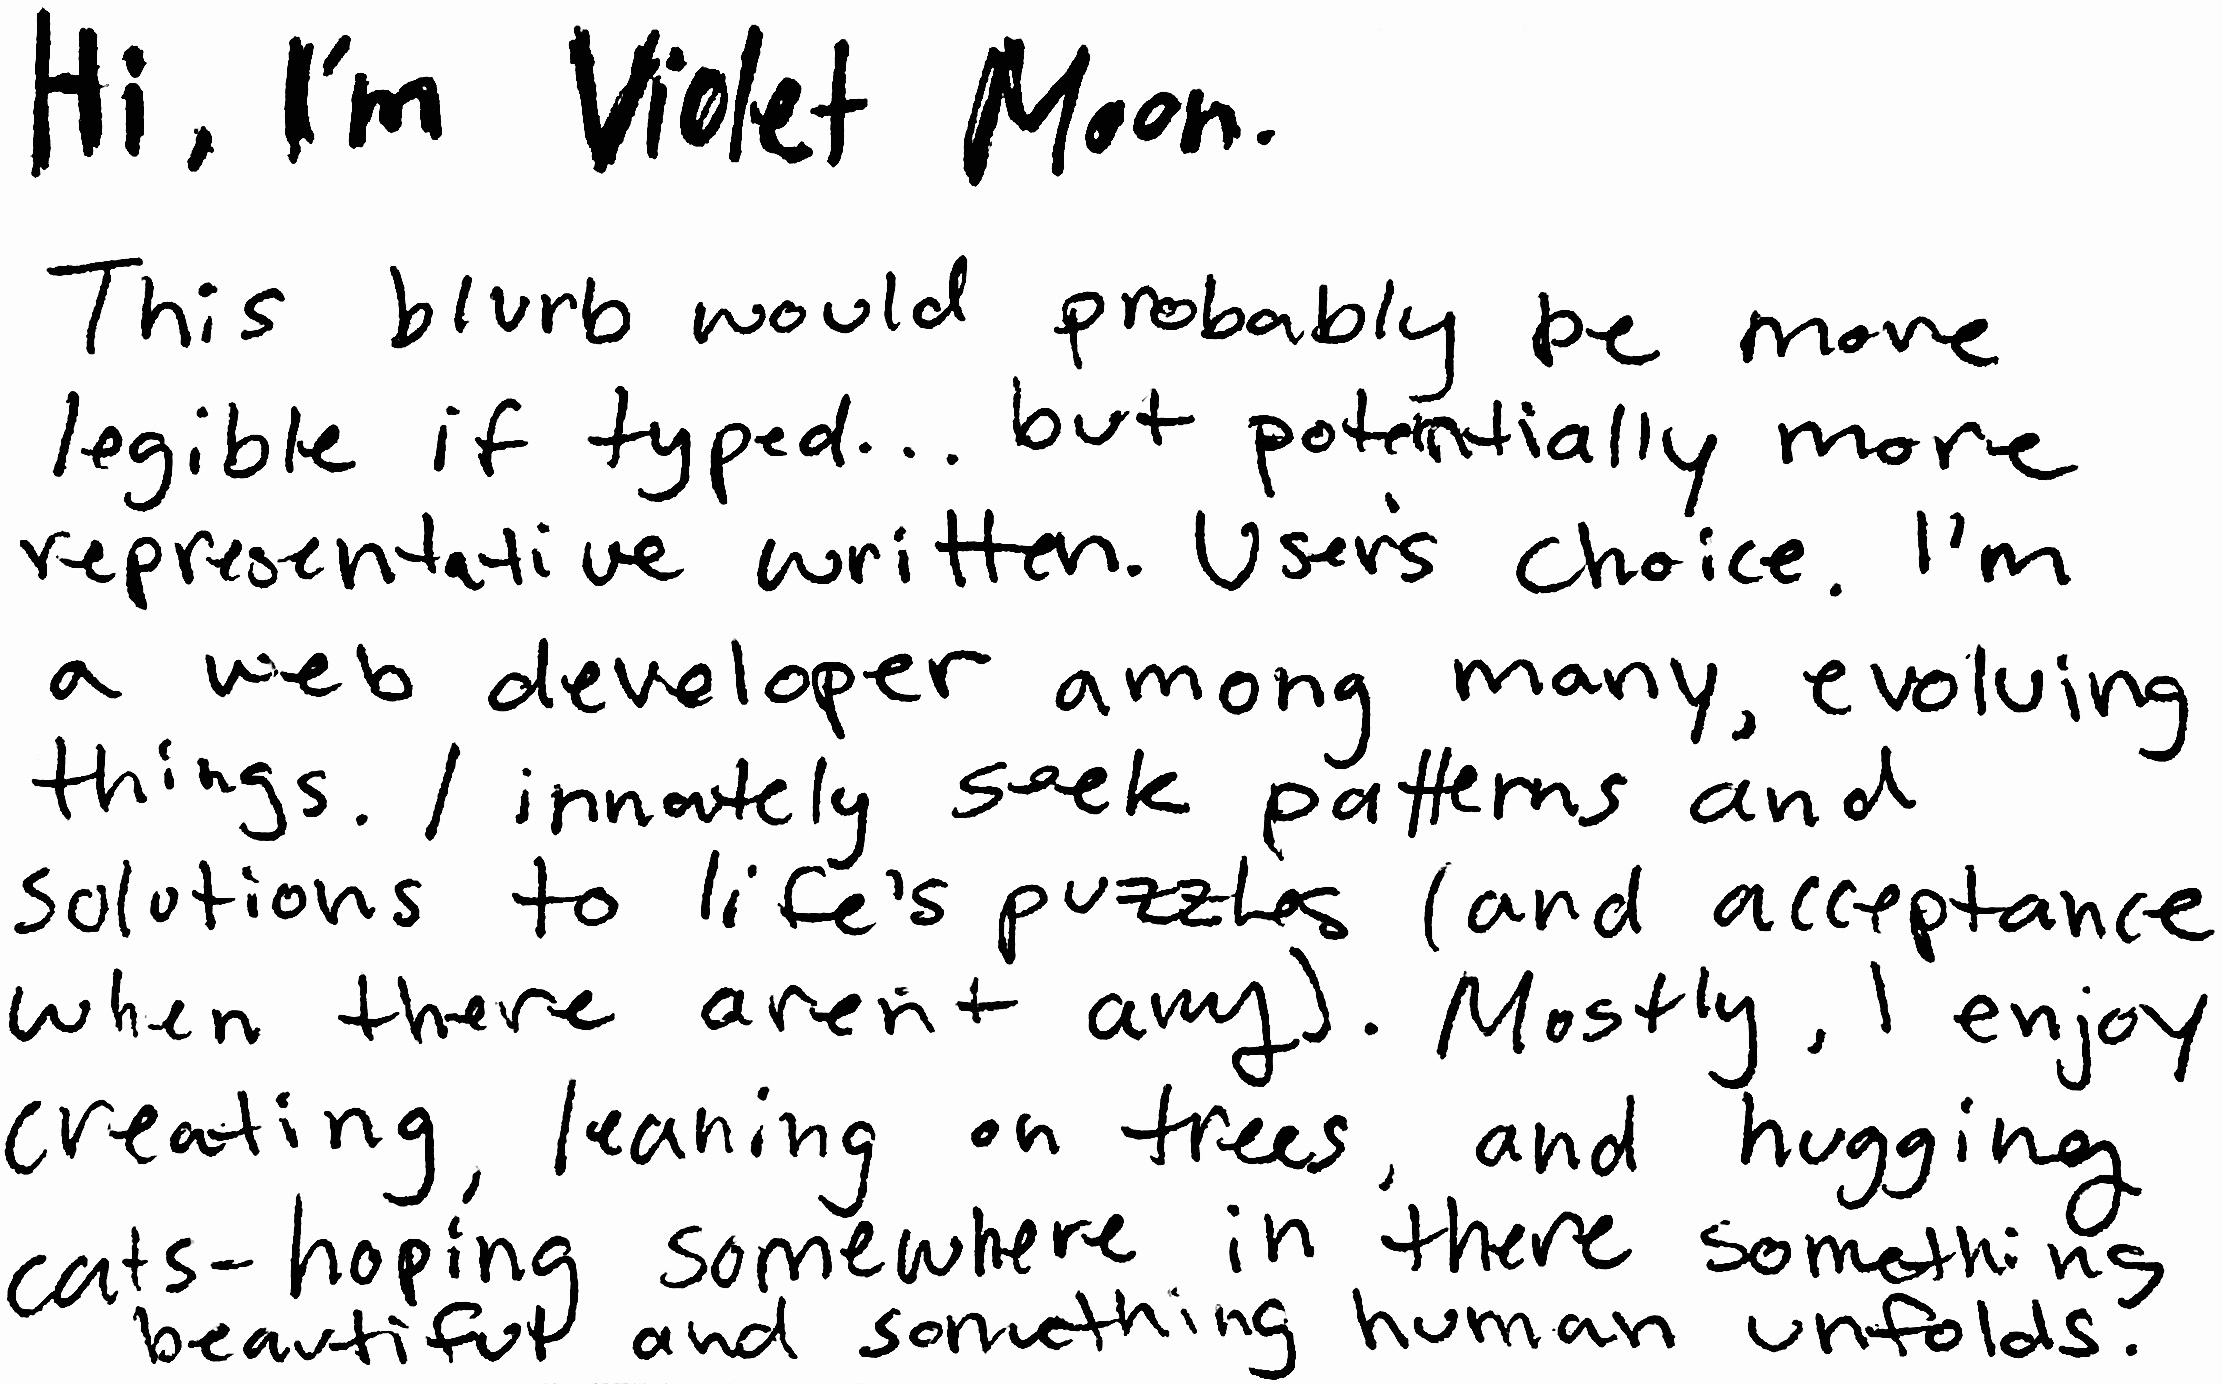 Hi, I'm Violet Moon.
This blurb would probably be more
legible if typed... but potentially more
representative written. User's choice. I'm
a web developer among many, evolving
things. I innately seek patterns and
solutions to life's puzzles (and acceptance
when there aren't any). Mostly, I enjoy
creating, leaning on trees, and hugging
cats-hoping somewhere in there something
beautiful and something human unfolds.